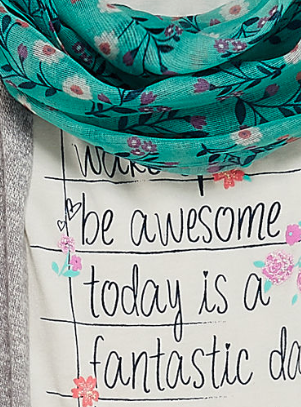 be awesome
today is a
fantastic